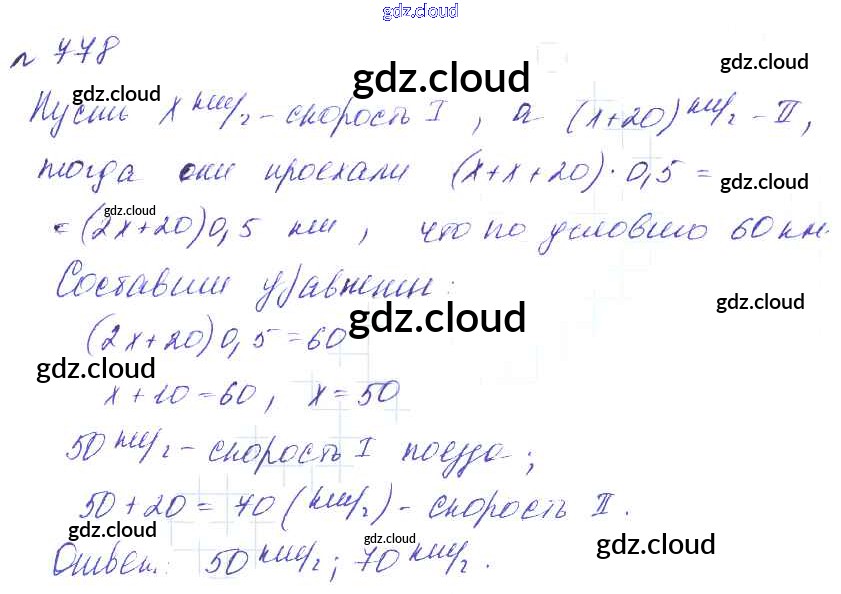 gdz.cloud
№ 778
gdz.cloud
gdz.cloud
gdz.cloud
Пусть x км/г - скорость I, а (x+20) км/г - II,
тогда они проехали (x+x+20)·0,5 =
gdz.cloud
gdz.cloud
= (2x+20)0,5 км, что по условию 60 км.
Составим уравнение:
gdz.cloud
gdz.cloud
(2x+20)0,5=60
gdz.cloud
x+10=60, x=50
50 км/г - скорость I поезда;
50+20=70 (км/г) - скорость II.
gdz.cloud
gdz.cloud
gdz.cloud
Ответ: 50 км/г; 70 км/г.